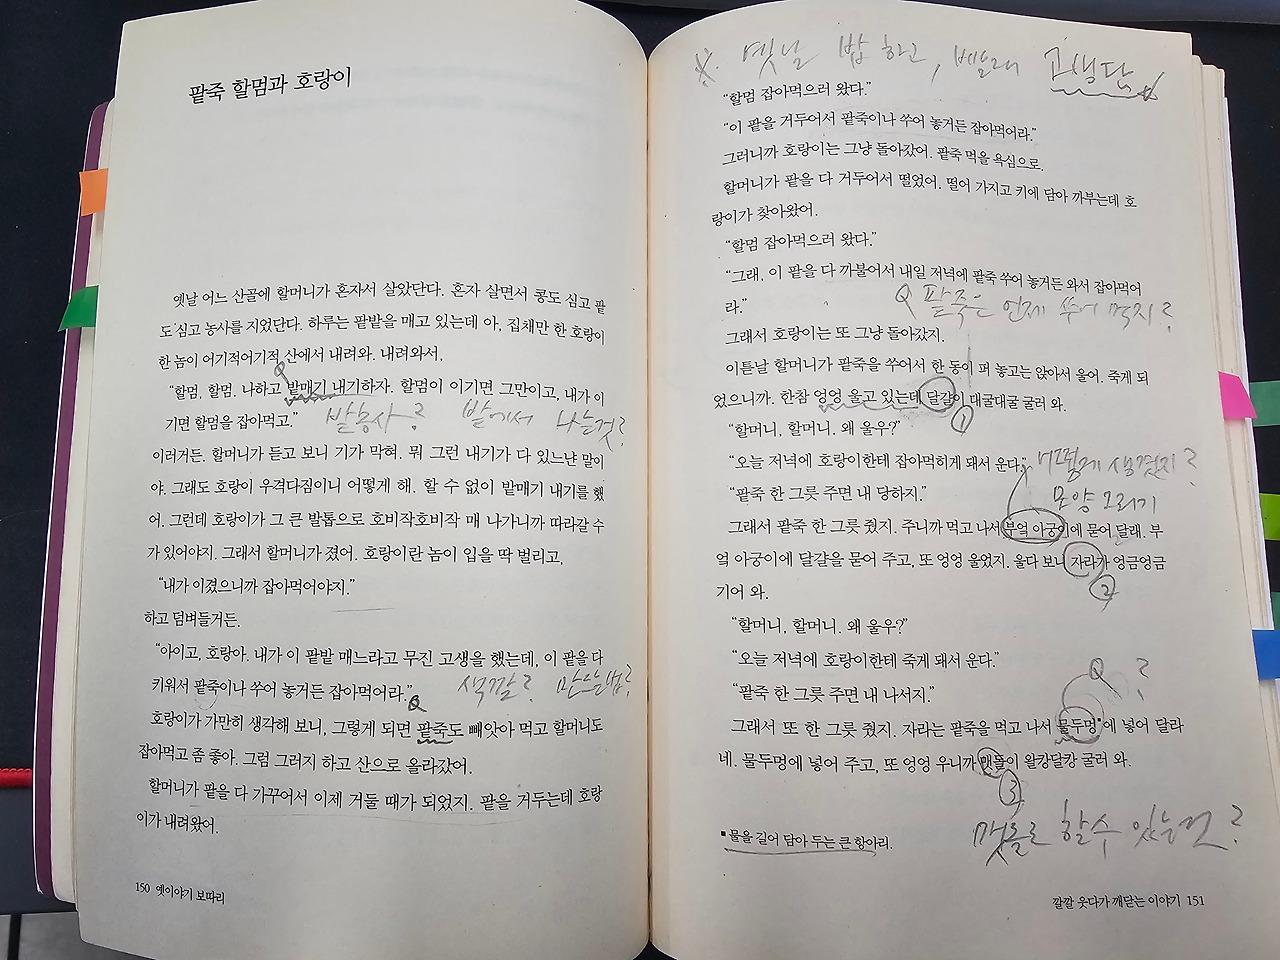 팥죽 할멈과 호랑이
옛날 어느 산골에 할머니가 혼자서 살았단다. 혼자 살면서 콩도 심고 팥
도 심고 농사를 지었단다. 하루는 팥밭을 매고 있는데 아, 집채만 한 호랑이
한 놈이 어기적어기적 산에서 내려와. 내려와서,
Q
“할멈, 할멈. 나하고 밭매기 내기하자. 할멈이 이기면 그만이고, 내가 이
기면 할멈을 잡아먹고.”
밭농사? 밭에서 나는것?
이러거든. 할머니가 듣고 보니 기가 막혀. 뭐 그런 내기가 다 있느냔 말이
야. 그래도 호랑이 우격다짐이니 어떻게 해. 할 수 없이 밭매기 내기를 했
어. 그런데 호랑이가 그 큰 발톱으로 호비작호비작 매 나가니까 따라갈 수
가 있어야지. 그래서 할머니가 졌어. 호랑이란 놈이 입을 딱 벌리고,
“내가 이겼으니까 잡아먹어야지.”
하고 덤벼들거든.
“아이고, 호랑아. 내가 이 팥밭 매느라고 무진 고생을 했는데, 이 팥을 다
키워서 팥죽이나 쑤어 놓거든 잡아먹어라.”
Q 색깔? 만드는법?
호랑이가 가만히 생각해 보니, 그렇게 되면 팥죽도 빼앗아 먹고 할머니도
잡아먹고 좀 좋아. 그럼 그러지 하고 산으로 올라갔어.
할머니가 팥을 다 가꾸어서 이제 거둘 때가 되었지. 팥을 거두는데 호랑
이가 내려왔어.
150 옛이야기 보따리
옛날 밥 하고, 고생담
“할멈 잡아먹으러 왔다.”
“이 팥을 거두어서 팥죽이나 쑤어 놓거든 잡아먹어라.”
그러니까 호랑이는 그냥 돌아갔어. 팥죽 먹을 욕심으로.
할머니가 팥을 다 거두어서 떨었어. 떨어 가지고 키에 담아 까부는데 호
랑이가 찾아왔어.
“할멈 잡아먹으러 왔다.”
“그래. 이 팥을 다 까불어서 내일 저녁에 팥죽 쑤어 놓거든 와서 잡아먹어
라.”
Q 팥죽은 언제 쑤어 먹지?
그래서 호랑이는 또 그냥 돌아갔지.
이튿날 할머니가 팥죽을 쑤어서 한 동이 퍼 놓고는 앉아서 울어. 죽게 되
었으니까. 한참 엉엉 울고 있는데 달걀이 대굴대굴 굴러 와.
1
“할머니, 할머니. 왜 울우?”
“오늘 저녁에 호랑이한테 잡아먹히게 돼서 운다.”
어떻게 생겼지?
“팥죽 한 그릇 주면 내 당하지.”
모양 오리기
그래서 팥죽 한 그릇 줬지. 주니까 먹고 나서 부엌 아궁이에 묻어 달래. 부
엌 아궁이에 달걀을 묻어 주고, 또 엉엉 울었지. 울다 보니 자라가 엉금엉금
2
기어 와.
“할머니, 할머니. 왜 울우?”
“오늘 저녁에 호랑이한테 죽게 돼서 운다.”
Q ?
“팥죽 한 그릇 주면 내 나서지.”
그래서 또 한 그릇 줬지. 자라는 팥죽을 먹고 나서 물두멍■에 넣어 달라
네. 물두멍에 넣어 주고, 또 엉엉 우니까 맷돌이 왈캉달캉 굴러 와.
3
맷돌로 할수 있는것?
■ 물을 길어 담아 두는 큰 항아리.
깔깔 웃다가 깨닫는 이야기 151